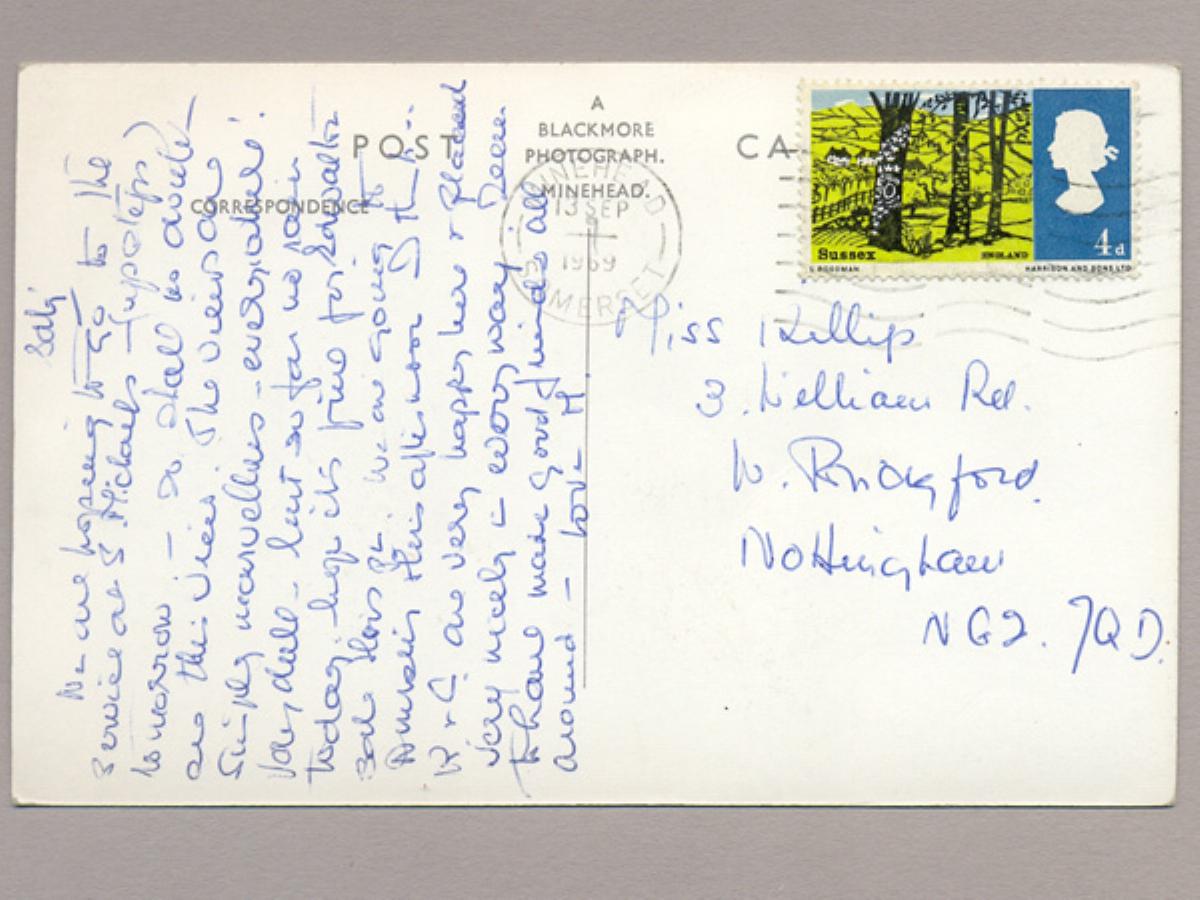 POST CA
A
BLACKMORE
PHOTOGRAPH.
MINEHEAD.
CORRESPONDENCE
MINEHEAD
13 SEP
1969
SOMERSET
Sussex
ENGLAND
HARRISON AND SONS LTD
4d
Miss Killip
3. William Rd.
W. Bridgford.
Nottingham
NG2. 7QD.
We are hoping to go to the
service at S. Michaels (up steps)
tomorrow — so shall be above
this view. The views are
simply marvellous - everywhere!
dull - but so far no rain
today. hope it's fine for
We are going to
this afternoon I think..
are very happy here & placed
very nicely in every way. Seem
to have made good friends all
around — love M